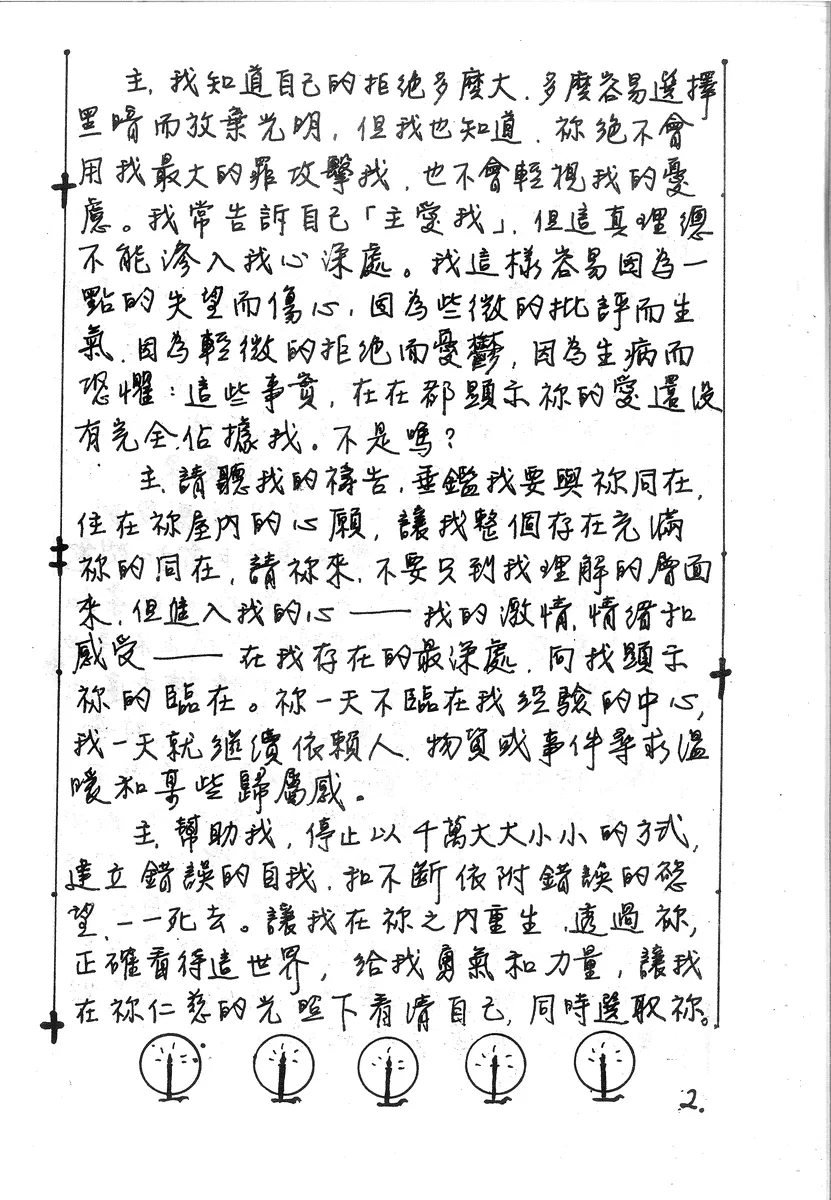 主，我知道自己的拒绝多麼大，多麼容易選擇
黑暗而放棄光明，但我也知道，祢绝不會
用我最大的罪攻擊我，也不會輕視我的憂
慮。我常告訴自己「主愛我」，但這真理總
不能滲入我心深處。我這樣容易因為一
點的失望而傷心，因為些微的批評而生
氣，因為輕微的拒绝而憂鬱，因為生病而
恐懼：這些事實，在在都顯示祢的愛還沒
有完全佔據我。不是嗎？
主，請聽我的禱告，垂鑑我要與祢同在，
住在祢屋内的心願，讓我整個存在充滿
祢的同在，請祢來，不要只到我理解的層面
來，但進入我的心——我的激情，情緒和
感受——在我存在的最深處，向我顯示
祢的臨在。祢一天不臨在我經驗的中心，
我一天就继續依賴人、物質或事件尋求溫
暖和某些歸屬感。
主，幫助我，停止以千萬大大小小的方式，
建立錯誤的自我，和不斷依附錯誤的慾
望，一一死去。讓我在祢之内重生，透過祢，
正確看待這世界，給我勇氣和力量，讓我
在祢仁慈的光照下看清自己，同時選取祢。
2.